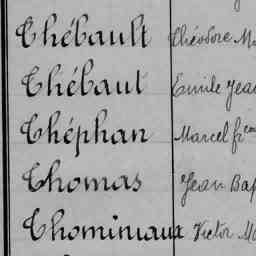 Thébault Théodore M
Thébaut Emile Jea
Théphan Marcel fr
Thomas Jean Bap
Thominiaux Victor Ma